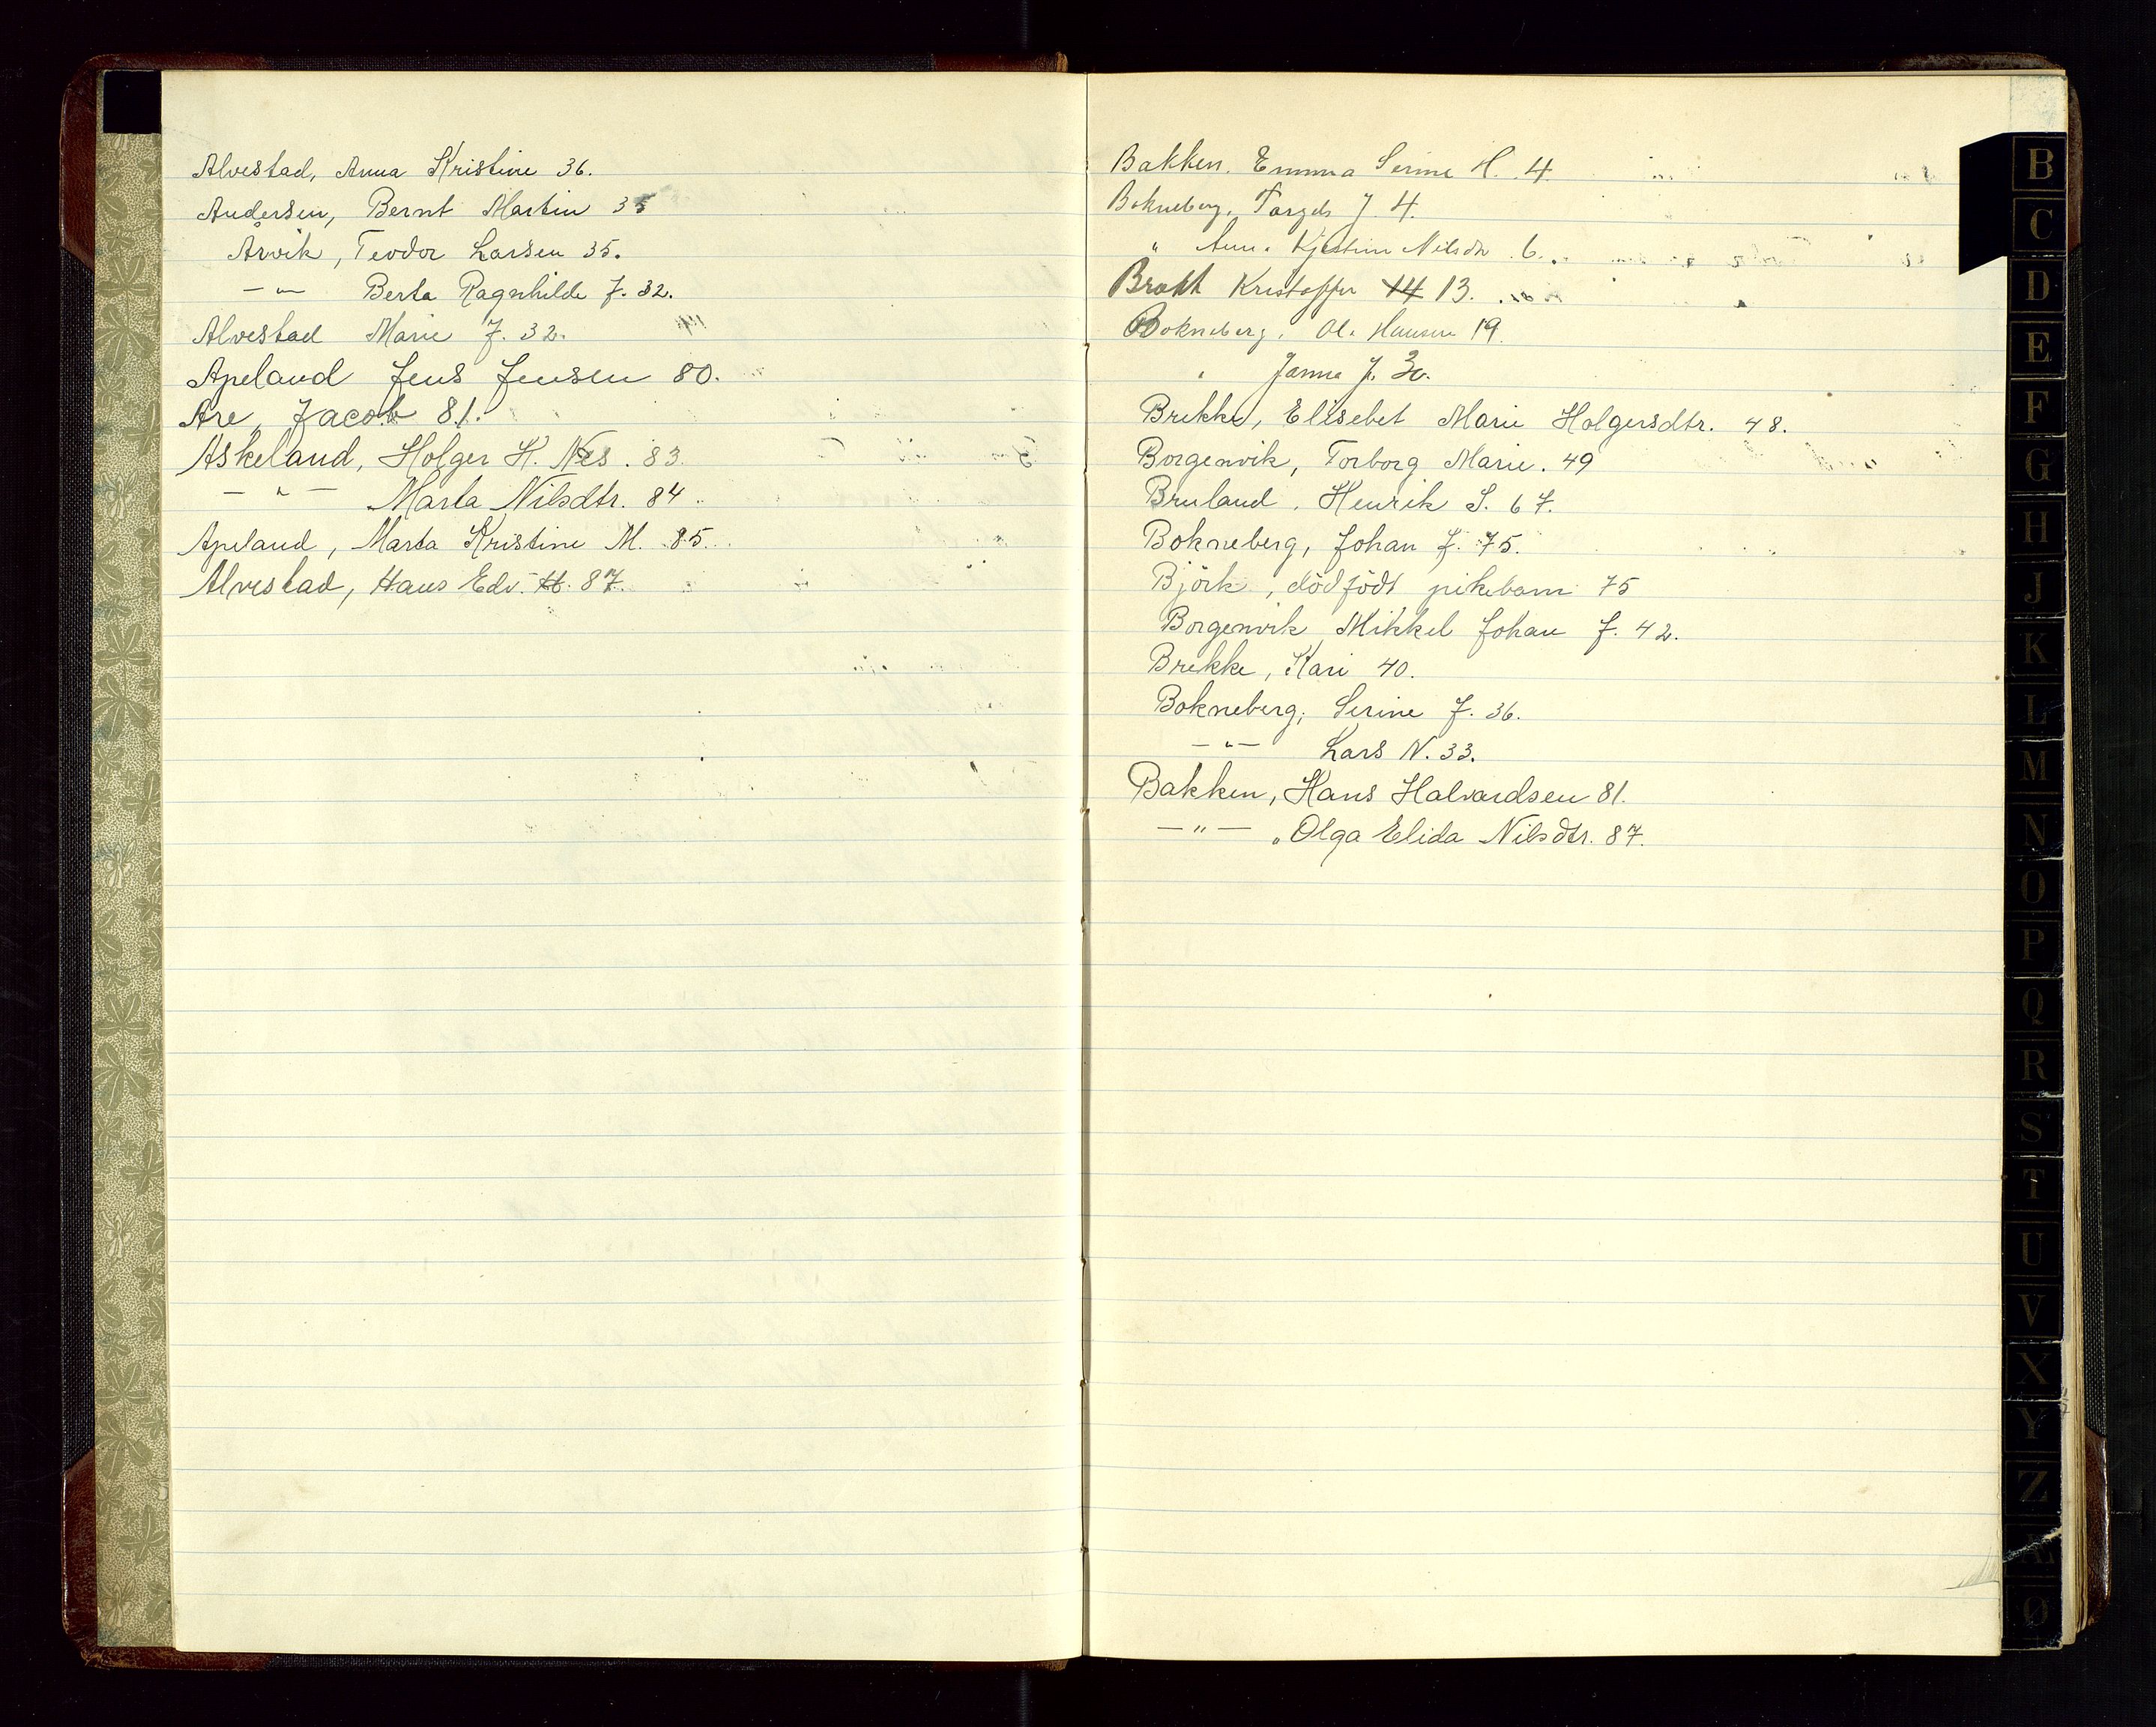 Alvestad, Anna Kristine 36.
Andersen, Bernt Martin 35
Årvik, Teodor Larsen 35.
— " — Berta Ragnhilde J. 32.
Alvestad Marie J. 32.
Apeland Jens Jensen 80.
Are, Jacob 81.
Askeland, Holger H. Nes. 83.
— " — Marta Nilsdtr. 84.
Apeland, Marta Kristine M. 85.
Alvestad, Hans Edv. H. 87.
Bakken, Emma Serine H. 4.
Bokneberg, Torger J. 4.
" Anna Kjestine Nilsdtr 6.
Bratt Kristoffer 14 13.
Bokneberg, Ole Hansen 19.
" Janna J. 30.
Brekke, Elisebet Marie Holgersdtr. 48.
Borgenvik, Torborg Marie. 49
Bruland, Henrik S. 67.
Bokneberg, Johan J. 75.
Björk, dödfödt pikebarn 75
Borgenvik Mikkel Johan J. 42.
Brekke, Kari 40.
Bokneberg, Serine J. 36.
— " — Lars N. 33.
Bakken, Hans Halvardsen 81.
— " — „ Olga Elida Nilsdtr. 87.
B
C
D
E
F
G
H
J
K
L
M
N
O
P
Q
R
S
T
U
V
X
Y
Z
Æ
Ø